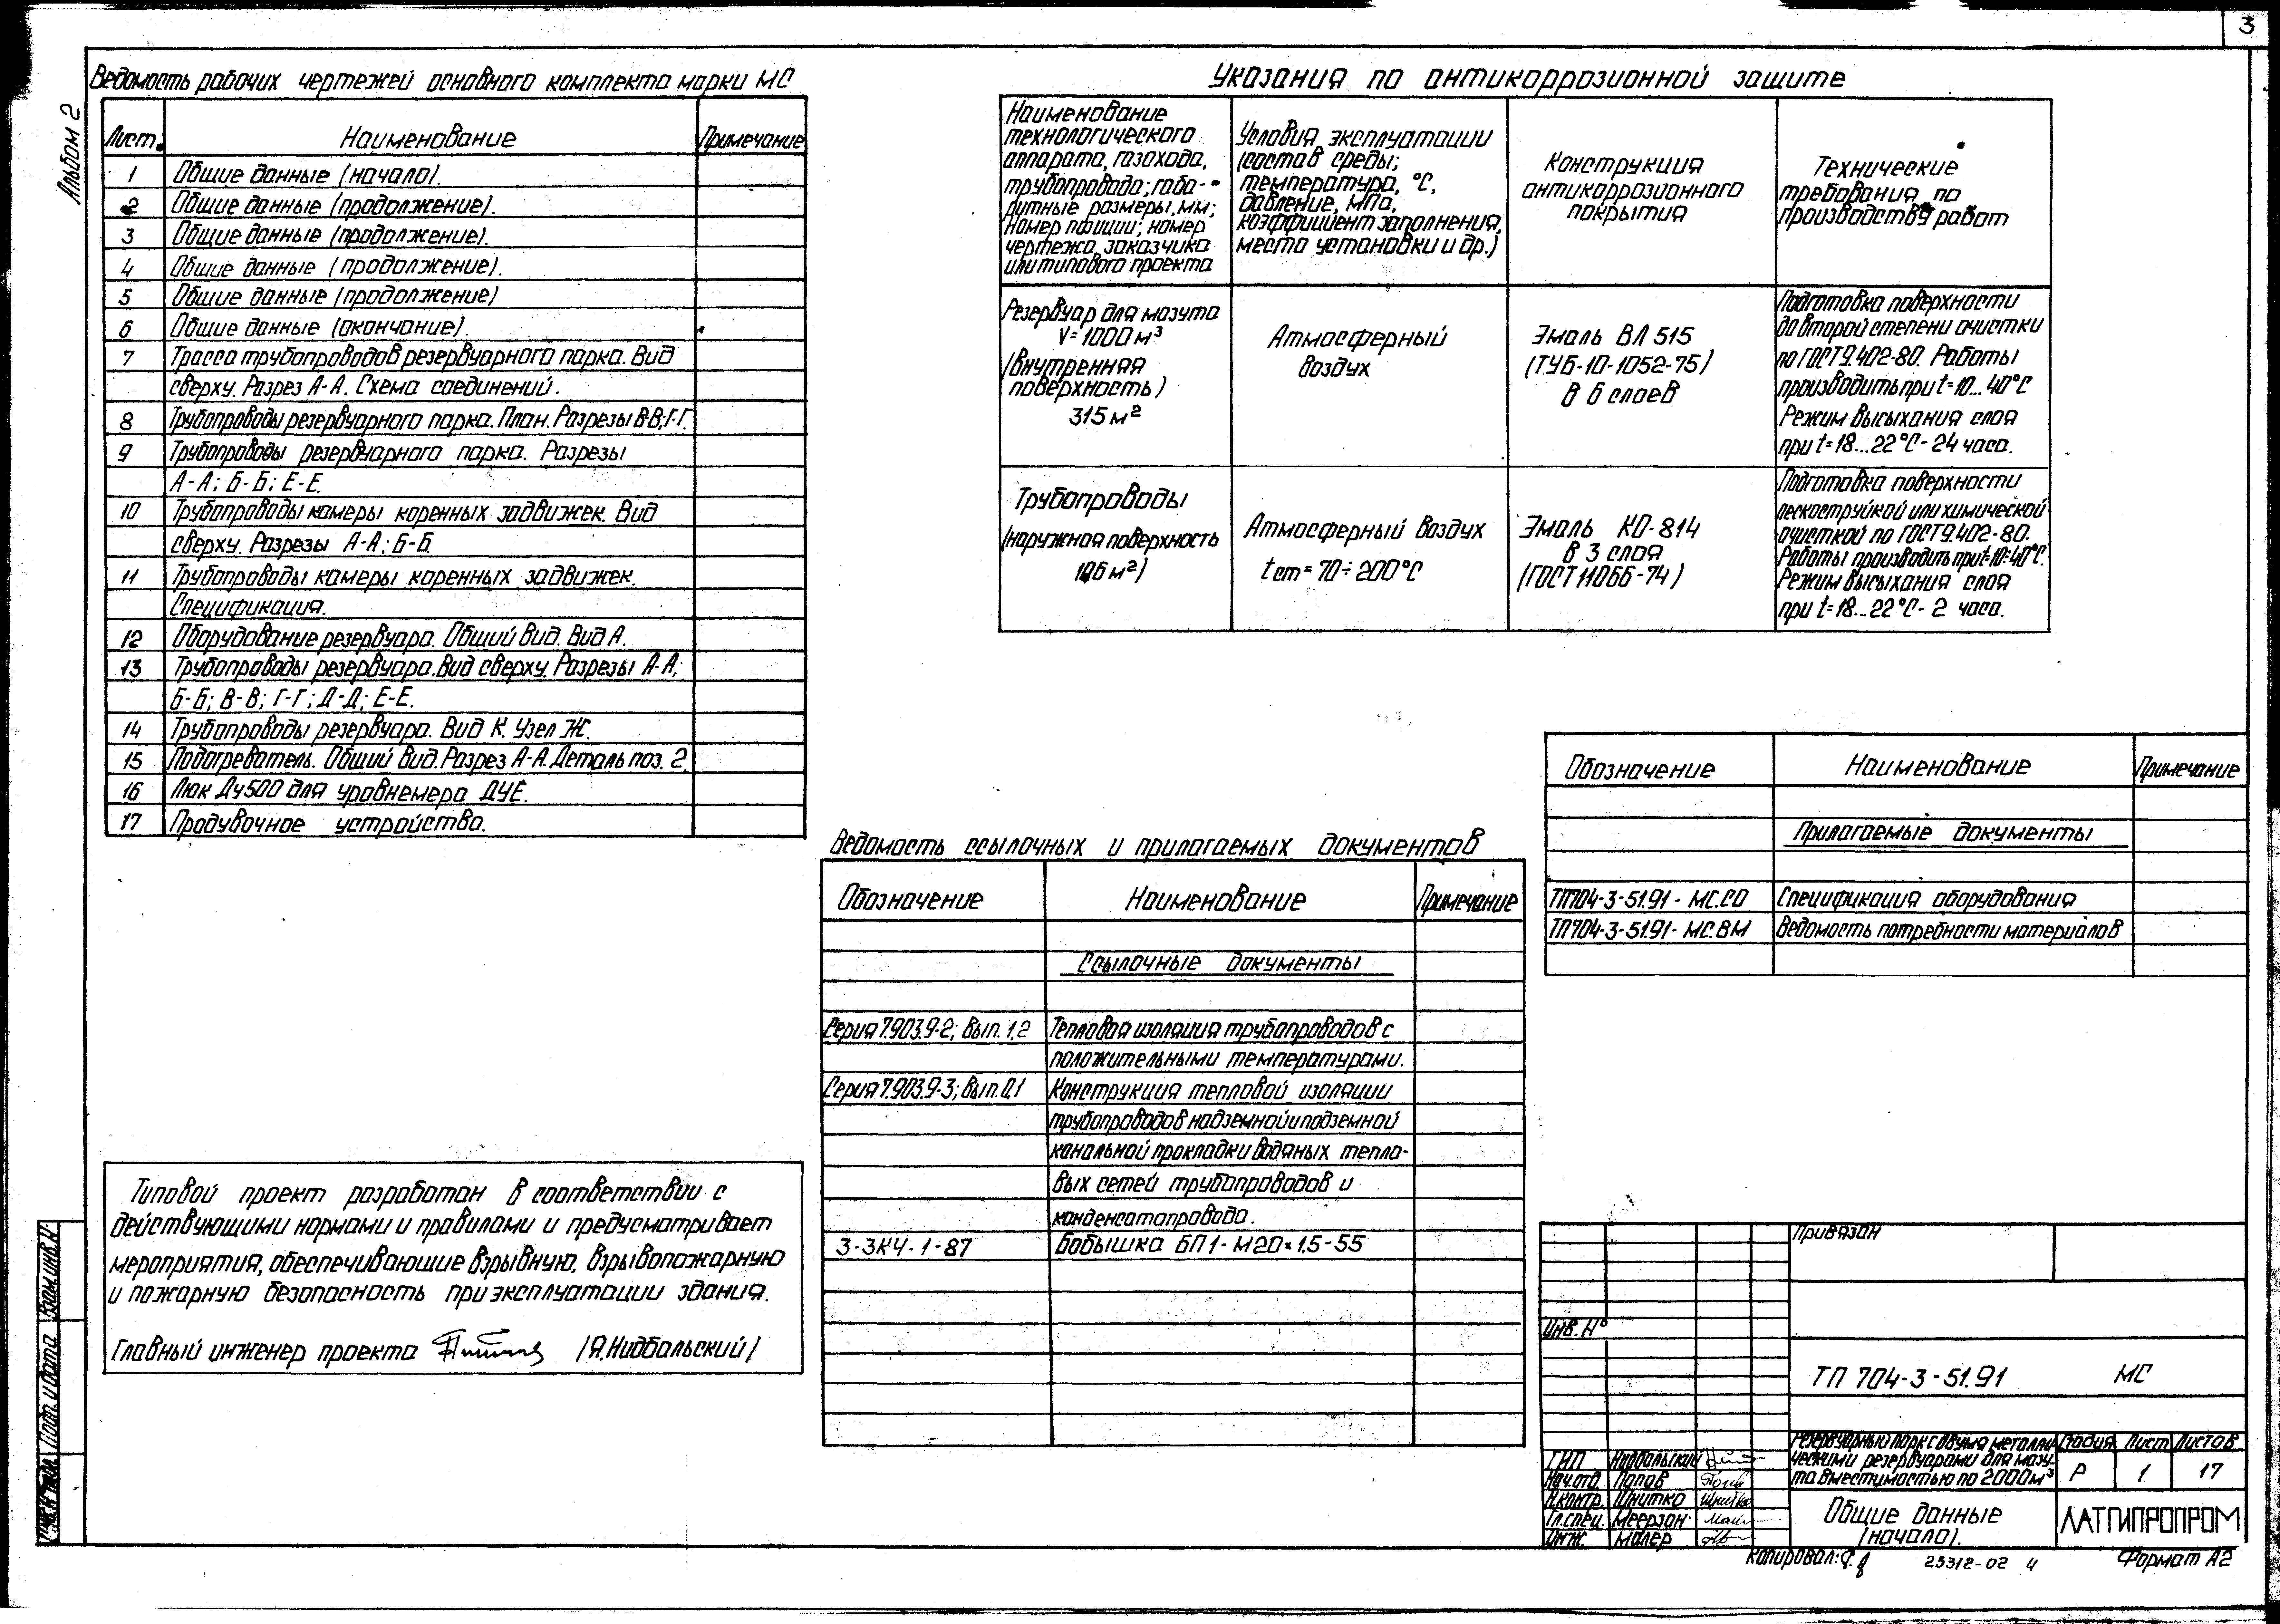 3
Альбом 2
Ведомость рабочих чертежей основного комплекта марки МС
Лист. Наименование Примечание
1 Общие данные (начало).
2 Общие данные (продолжение).
3 Общие данные (продолжение).
4 Общие данные (продолжение).
5 Общие данные (продолжение)
6 Общие данные (окончание).
7 Трасса трубопроводов резервуарного парка. Вид
сверху. Разрез А-А. Схема соединений.
8 Трубопроводы резервуарного парка. План. Разрезы В-В; Г-Г.
9 Трубопроводы резервуарного парка. Разрезы
А-А; Б-Б; Е-Е.
10 Трубопроводы камеры коренных задвижек. Вид
сверху. Разрезы А-А; Б-Б
11 Трубопроводы камеры коренных задвижек.
Спецификация.
12 Оборудование резервуара. Общий вид. Вид А.
13 Трубопроводы резервуара. Вид сверху. Разрезы А-А;
Б-Б; В-В; Г-Г; Д-Д; Е-Е.
14 Трубопроводы резервуара. Вид К. Узел Ж.
15 Подогреватель. Общий вид. Разрез А-А. Деталь поз. 2.
16 Люк Ду500 для уровнемера ДУЕ.
17 Продувочное устройство.
Типовой проект разработан в соответствии с
действующими нормами и правилами и предусматривает
мероприятия, обеспечивающие взрывную, взрывопожарную
и пожарную безопасность при эксплуатации здания.
Главный инженер проекта (Я.Нидбальский)
Указания по антикоррозионной защите
Наименование
технологического
аппарата, газохода,
трубопровода; габа-
ритные размеры, мм;
Номер позиции; номер
чертежа заказчика
или типового проекта
Условия эксплуатации
(состав среды;
температура, °С,
давление, МПа,
коэффициент заполнения,
место установки и др.)
Конструкция
антикоррозионного
покрытия
Технические
требования по
производству работ
Резервуар для мазута
V=1000м³
(внутренняя
поверхность)
315м²
Атмосферный
воздух
Эмаль ВЛ 515
(ТУ6-10-1052-75)
в 6 слоев
Подготовка поверхности
до второй степени очистки
по ГОСТ 9.402-80. Работы
производить при t=10...40°С
Режим высыхания слоя
при t=18...22°С-24 часа.
Трубопроводы
(наружная поверхность
106м²)
Атмосферный воздух
tст=70÷200°С
Эмаль КО-814
в 3 слоя
(ГОСТ 11066-74)
Подготовка поверхности
пескоструйкой или химической
очисткой по ГОСТ 9.402-80.
Работы производить при t=10÷40°С.
Режим высыхания слоя
при t=18...22°С- 2 часа.
Ведомость ссылочных и прилагаемых документов
Обозначение Наименование Примечание
Ссылочные документы
Серия 7.903.9-2; Вып. 1,2 Тепловая изоляция трубопроводов с
положительными температурами.
Серия 7.903.9-3; Вып. 0,1 Конструкция тепловой изоляции
трубопроводов надземной и подземной
канальной прокладки водяных тепло-
вых сетей трубопроводов и
конденсатопровода.
3-ЗК4-1-87 Бобышка БП1-М20×1,5-55
Обозначение Наименование Примечание
Прилагаемые документы
ТП704-3-51.91- МС.СО Спецификация оборудования
ТП704-3-51.91- МС.ВМ Ведомость потребности материалов
Привязан
Инв. №
ТП 704-3-51.91 МС
Резервуарный парк с двумя металли-
ческими резервуарами для мазу-
та вместимостью по 2000м³
Стадия Лист Листов
Р 1 17
Общие данные
(начало).
ЛАТГИПРОПРОМ
ГИП Нидбальский
Нач.отд. Попов
Н.контр. Шнитко
Гл.спец. Меерзон
Инж. Малер
Копировал:
25312-02 4
Формат А2
Взам.инв.№
Подп. и дата